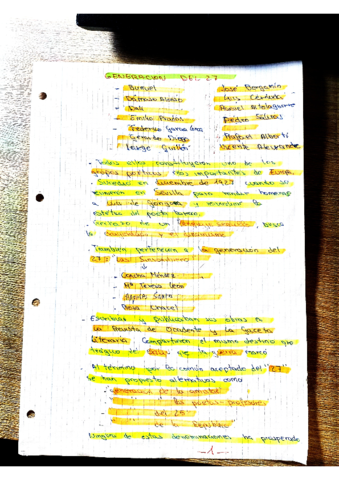 GENERACION DEL 27
- Buñuel
- José Bergamín
- Dámaso Alonso
- Luis Cernuda
- Dalí
- Manuel Altolaguirre
- Emilio Prados
- Pedro Salinas
- Federico García Lorca
- Gerardo Diego
- Rafael Alberti
- Jorge Guillén
- Vicente Aleixandre
- Todos ellos constituyeron uno de los
grupos poéticos más importantes de Europa.
Sucedió en diciembre de 1927 cuando se
reunieron en Sevilla para rendir homenaje
a Luis de Góngora y
estética del poeta barroco.
de un
la
- También pertenecen a la generación del
27: "Las Sinsombrero"
- Concha Méndez
- Mª Teresa León
-
- Rosa Chacel
- Escribían y publicaban sus obras en
La Revista de Occidente y La Gaceta
Literaria. Compartieron el mismo destino
trágico del que la guerra marcó
- Al término por lo común aceptado del "27"
se han propuesto alternativas como
"generación de la amistad"
" los poetas profesores
" del 25"
" de la República
Ninguna de estas denominaciones ha prosperado
-1-